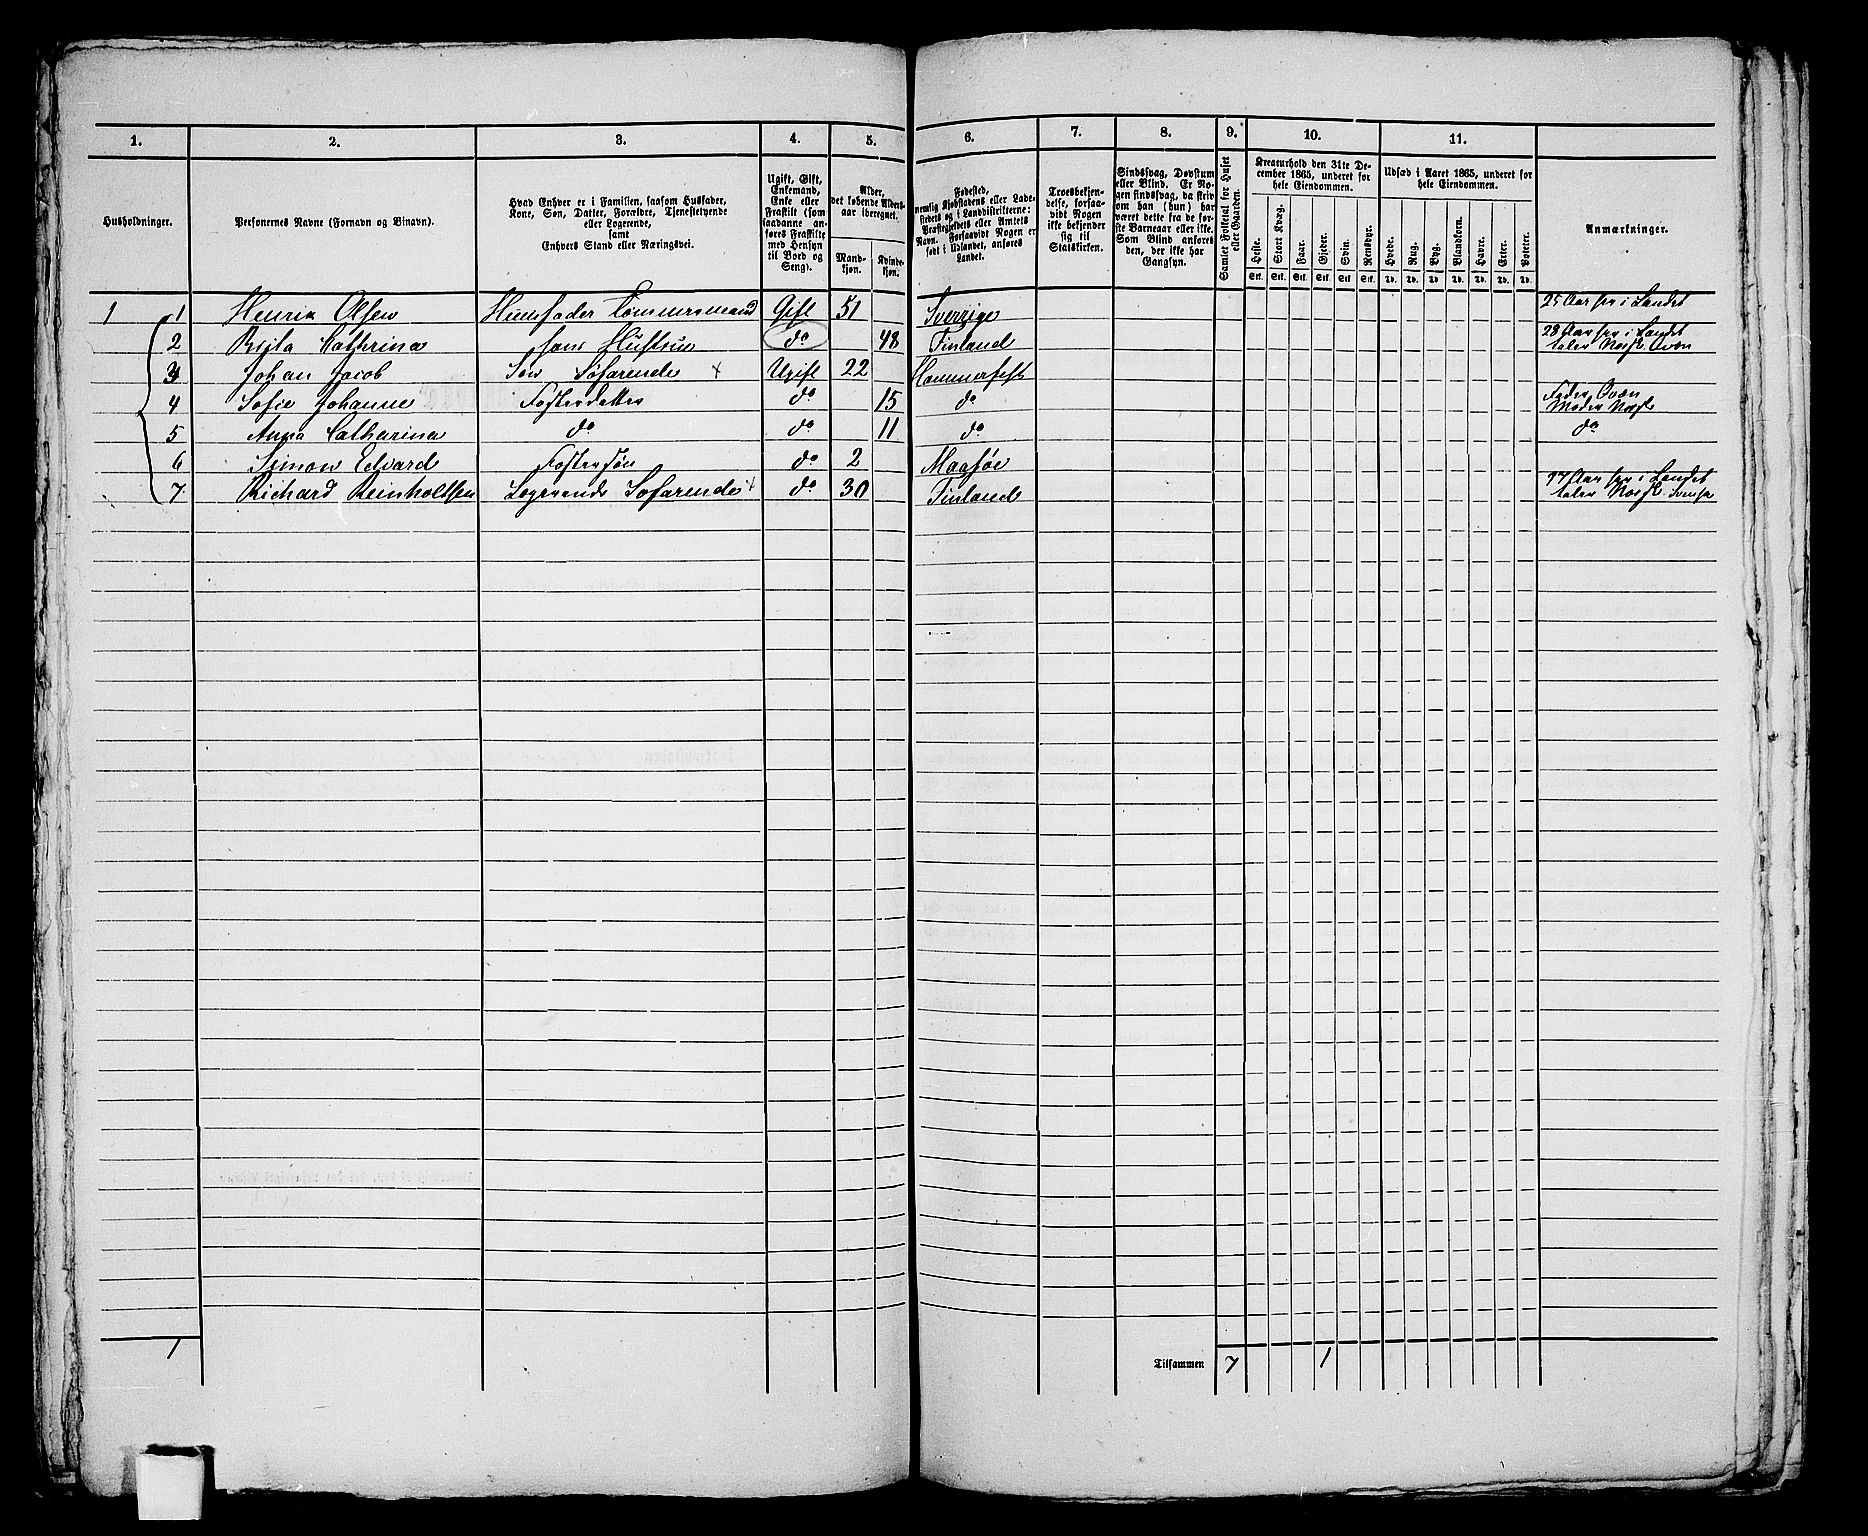 1. 2. 3. 4. 5. 6. 7. 8. 9. 10. 11.
Husholdninger.
Personernes Navne (Fornavn og Binavn).
Hvad Enhver er i Familien, saasom Husfader,
Kone, Søn, Datter, Forældre, Tjenestetyende
eller Logerende,
samt
Enhvers Stand eller Næringsvei.
Ugift, Gift,
Enkemand,
Enke eller
Fraskilt (som
saadanne an-
føres Fraskilte
med Hensyn
til Bord og
Seng).
Alder,
det løbende Alders-
aar iberegnet.
Mand-
kjøn.
Kvinde-
kjøn.
Fødested,
nemlig Kjøbstadens eller Lade-
stedets og i Landdistrikterne:
Præstegjeldets eller Amtets
Navn. Forsaavidt Nogen er
født i Udlandet, anføres
Landet.
Troesbekjen-
delse, forsaa-
vidt Nogen
ikke bekjender
sig til
Statskirken.
Sindssvag, Døvstum
eller Blind. Er No-
gen sindssvag, da skriv
om han (hun) har
været dette fra de før-
ste Barneaar eller ikke.
Som Blind anføres
den, der ikke har
Gangsyn.
Samlet Folketal for Huset
eller Gaarden.
Kreaturhold den 31te De-
cember 1865, underet for
hele Eiendommen.
Heste. Stort Kvæg. Faar. Gjeder. Svin. Rensdyr.
Stk. Stk. Stk. Stk. Stk. Stk.
Udsæd i Aaret 1865, underet for
hele Eiendommen.
Hvede. Rug. Byg. Blandkorn. Havre. Erter. Poteter.
Td. Td. Td. Td. Td. Td. Td.
Anmærkninger.
1 1 Henrik Olsen Huusfader Tømmersmand Gift 51 Sverrige 25 Aar her i Landet
2 Brita Cathrina hans Hustru do 48 Finland 28 Aar her i Landet
taler Norsk Qvæn
3 Johan Jacob Søn Søfarende + Ugift 22 Hammerfest
4 Sofie Johanne Fosterdatter do 15 do Fader Qvæn
Moder Norsk
5 Anna Catharina do do 11 do do
6 Simon Edvard Fostersøn do 2 Maasøe
7 Richard Reinholtsen Logerende Søfarende + do 30 Finland Aar her i Landet
taler Norsk Svensk
1 Tilsammen 7 1